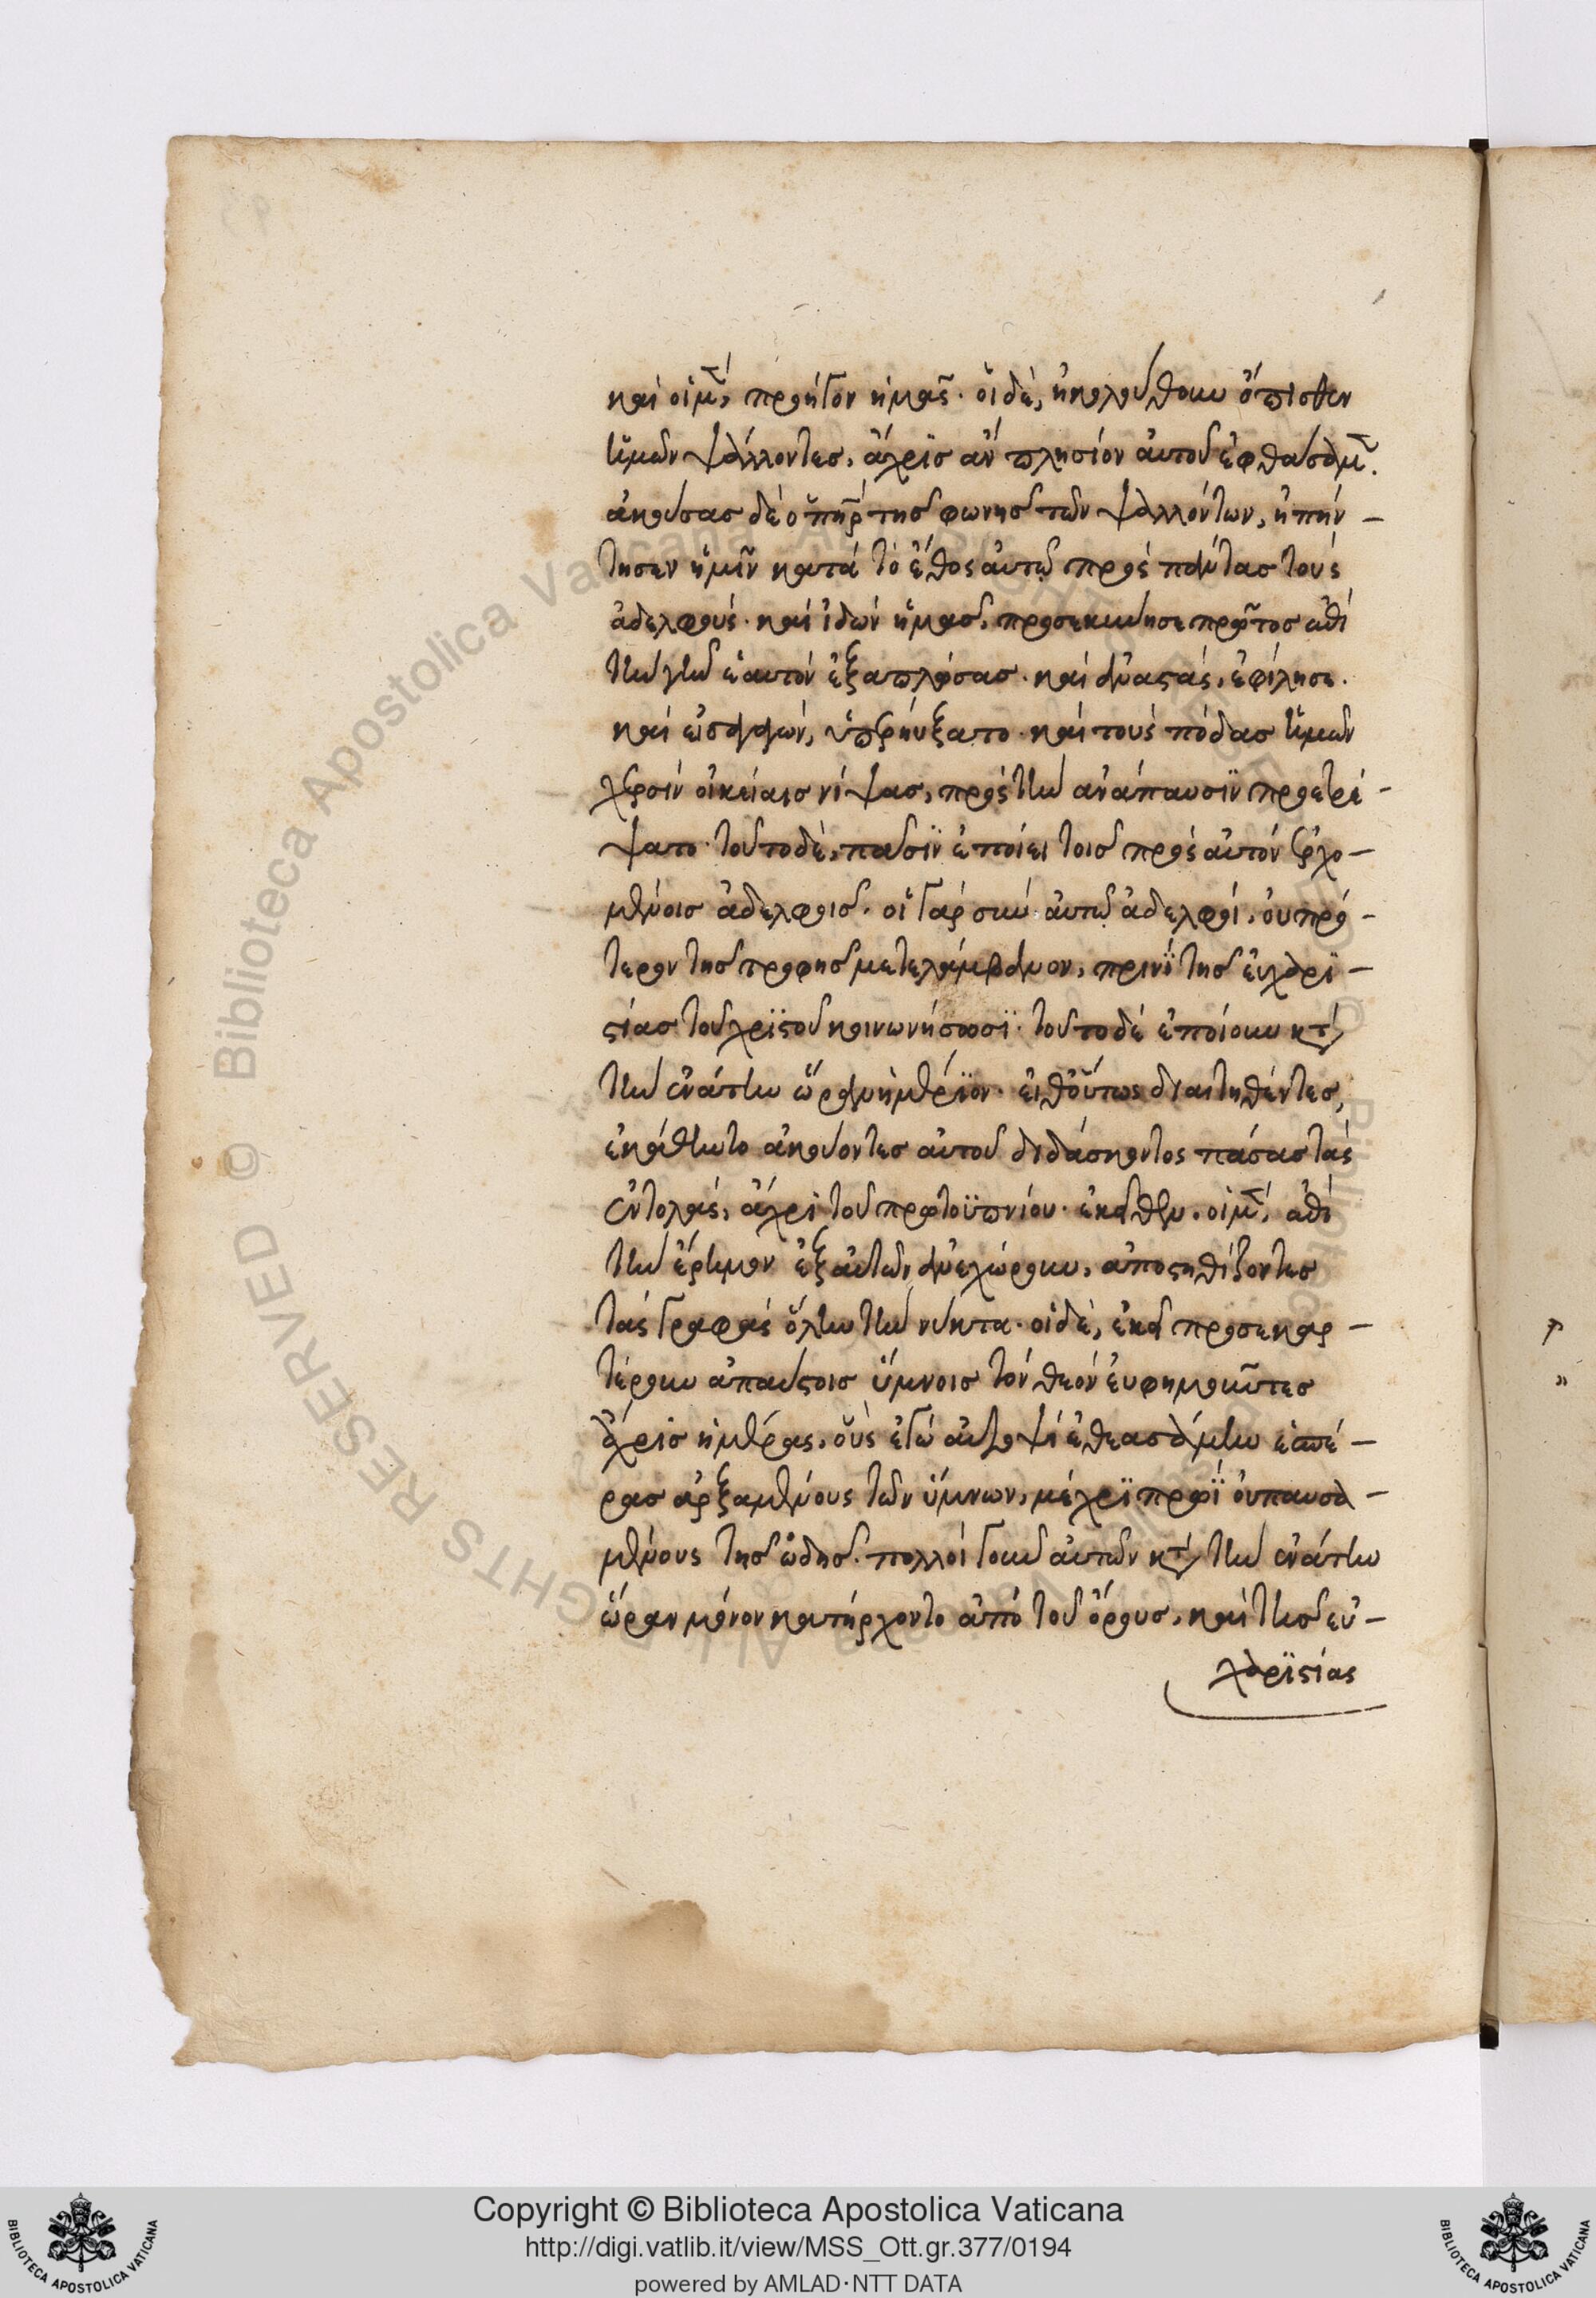 καὶ οἱ μ(ὲν), προῆγον ἡμᾶς· οἱ δὲ, ἠκολούθουν ὄπισθεν
ἡμῶν ψάλλοντες, ἄχρις ἂν πλησίον αὐτοῦ ἐφθάσαμ(εν).
ἀκούσας δὲ ὁ π(ατ)ὴρ τῆς φωνῆς τῶν ψαλλόντων, ὑπήν-
τησεν ἡμῖν κατὰ τὸ ἔθος αὐτῶ πρὸς πάντας τοὺς
ἀδελφούς· καὶ ἰδὼν ἡμᾶς, προσεκύνησε πρῶτος ἐπὶ
τὴν γῆν ἑαυτὸν ἐξαπλώσας· καὶ ἀναστὰς, ἐφίλησε·
καὶ εἰσαγαγὼν, ὑπερηύξατο· καὶ τοὺς πόδας ἡμῶν
χερσὶν οἰκείαις νίψας, πρὸς τὴν ἀνάπαυσϊν προετρέ-
ψατο· τοῦτο δὲ, πᾶσϊν ἐποίει τοῖς πρὸς αὐτὸν ἐρχο-
μένοις ἀδελφοῖς· οἱ γὰρ σὺν αὐτῶ ἀδελφοὶ, οὐ πρό-
τερον τῆς τροφῆς μετελάμβανον, πρινὴ τῆς εὐχαρϊ-
στίας τοῦ χρϊστοῦ κοινωνήσωσϊ· τοῦτο δὲ ἐποίουν κατὰ
τὴν ἐνάτην ὥραν ἡμέρϊον· εἶθ' οὕτως διαιτηθέντες,
ἐκάθηντο ἀκούοντες αὐτοῦ διδάσκοντος πάσας τὰς
ἐντολὰς, ἄχρι τοῦ πρωτοϋπνίου· ἐκεῖθεν, οἱ μ(ὲν), ἐπὶ
τὴν ἔρημον ἐξ αὐτῶν ἀνεχώρουν, ἀποστηθίζοντες
τὰς γραφὰς ὅλην τὴν νύκτα· οἱ δὲ, ἐκεῖ προσεκαρ-
τέρουν ἀπαύστοις ὕμνοις τὸν θεὸν εὐφημοῦντες
ἄχρις ἡμέρας, οὓς ἐγὼ αὐτοψὶ ἐθεασάμην ἑσπέ-
ρας ἀρξαμένους τῶν ὕμνων, μέχρϊ πρωῒ οὐ παυσα-
μένους τῆς ὠδῆς· πολλοὶ γοῦν αὐτῶν κατὰ τὴν ἐνάτην
ὥραν μόνον κατήρχοντο ἀπὸ τοῦ ὄρους, καὶ τῆς εὐ-
χαρϊστίας
Copyright © Biblioteca Apostolica Vaticana
http://digi.vatlib.it/view/MSS_Ott.gr.377/0194
powered by AMLAD·NTT DATA